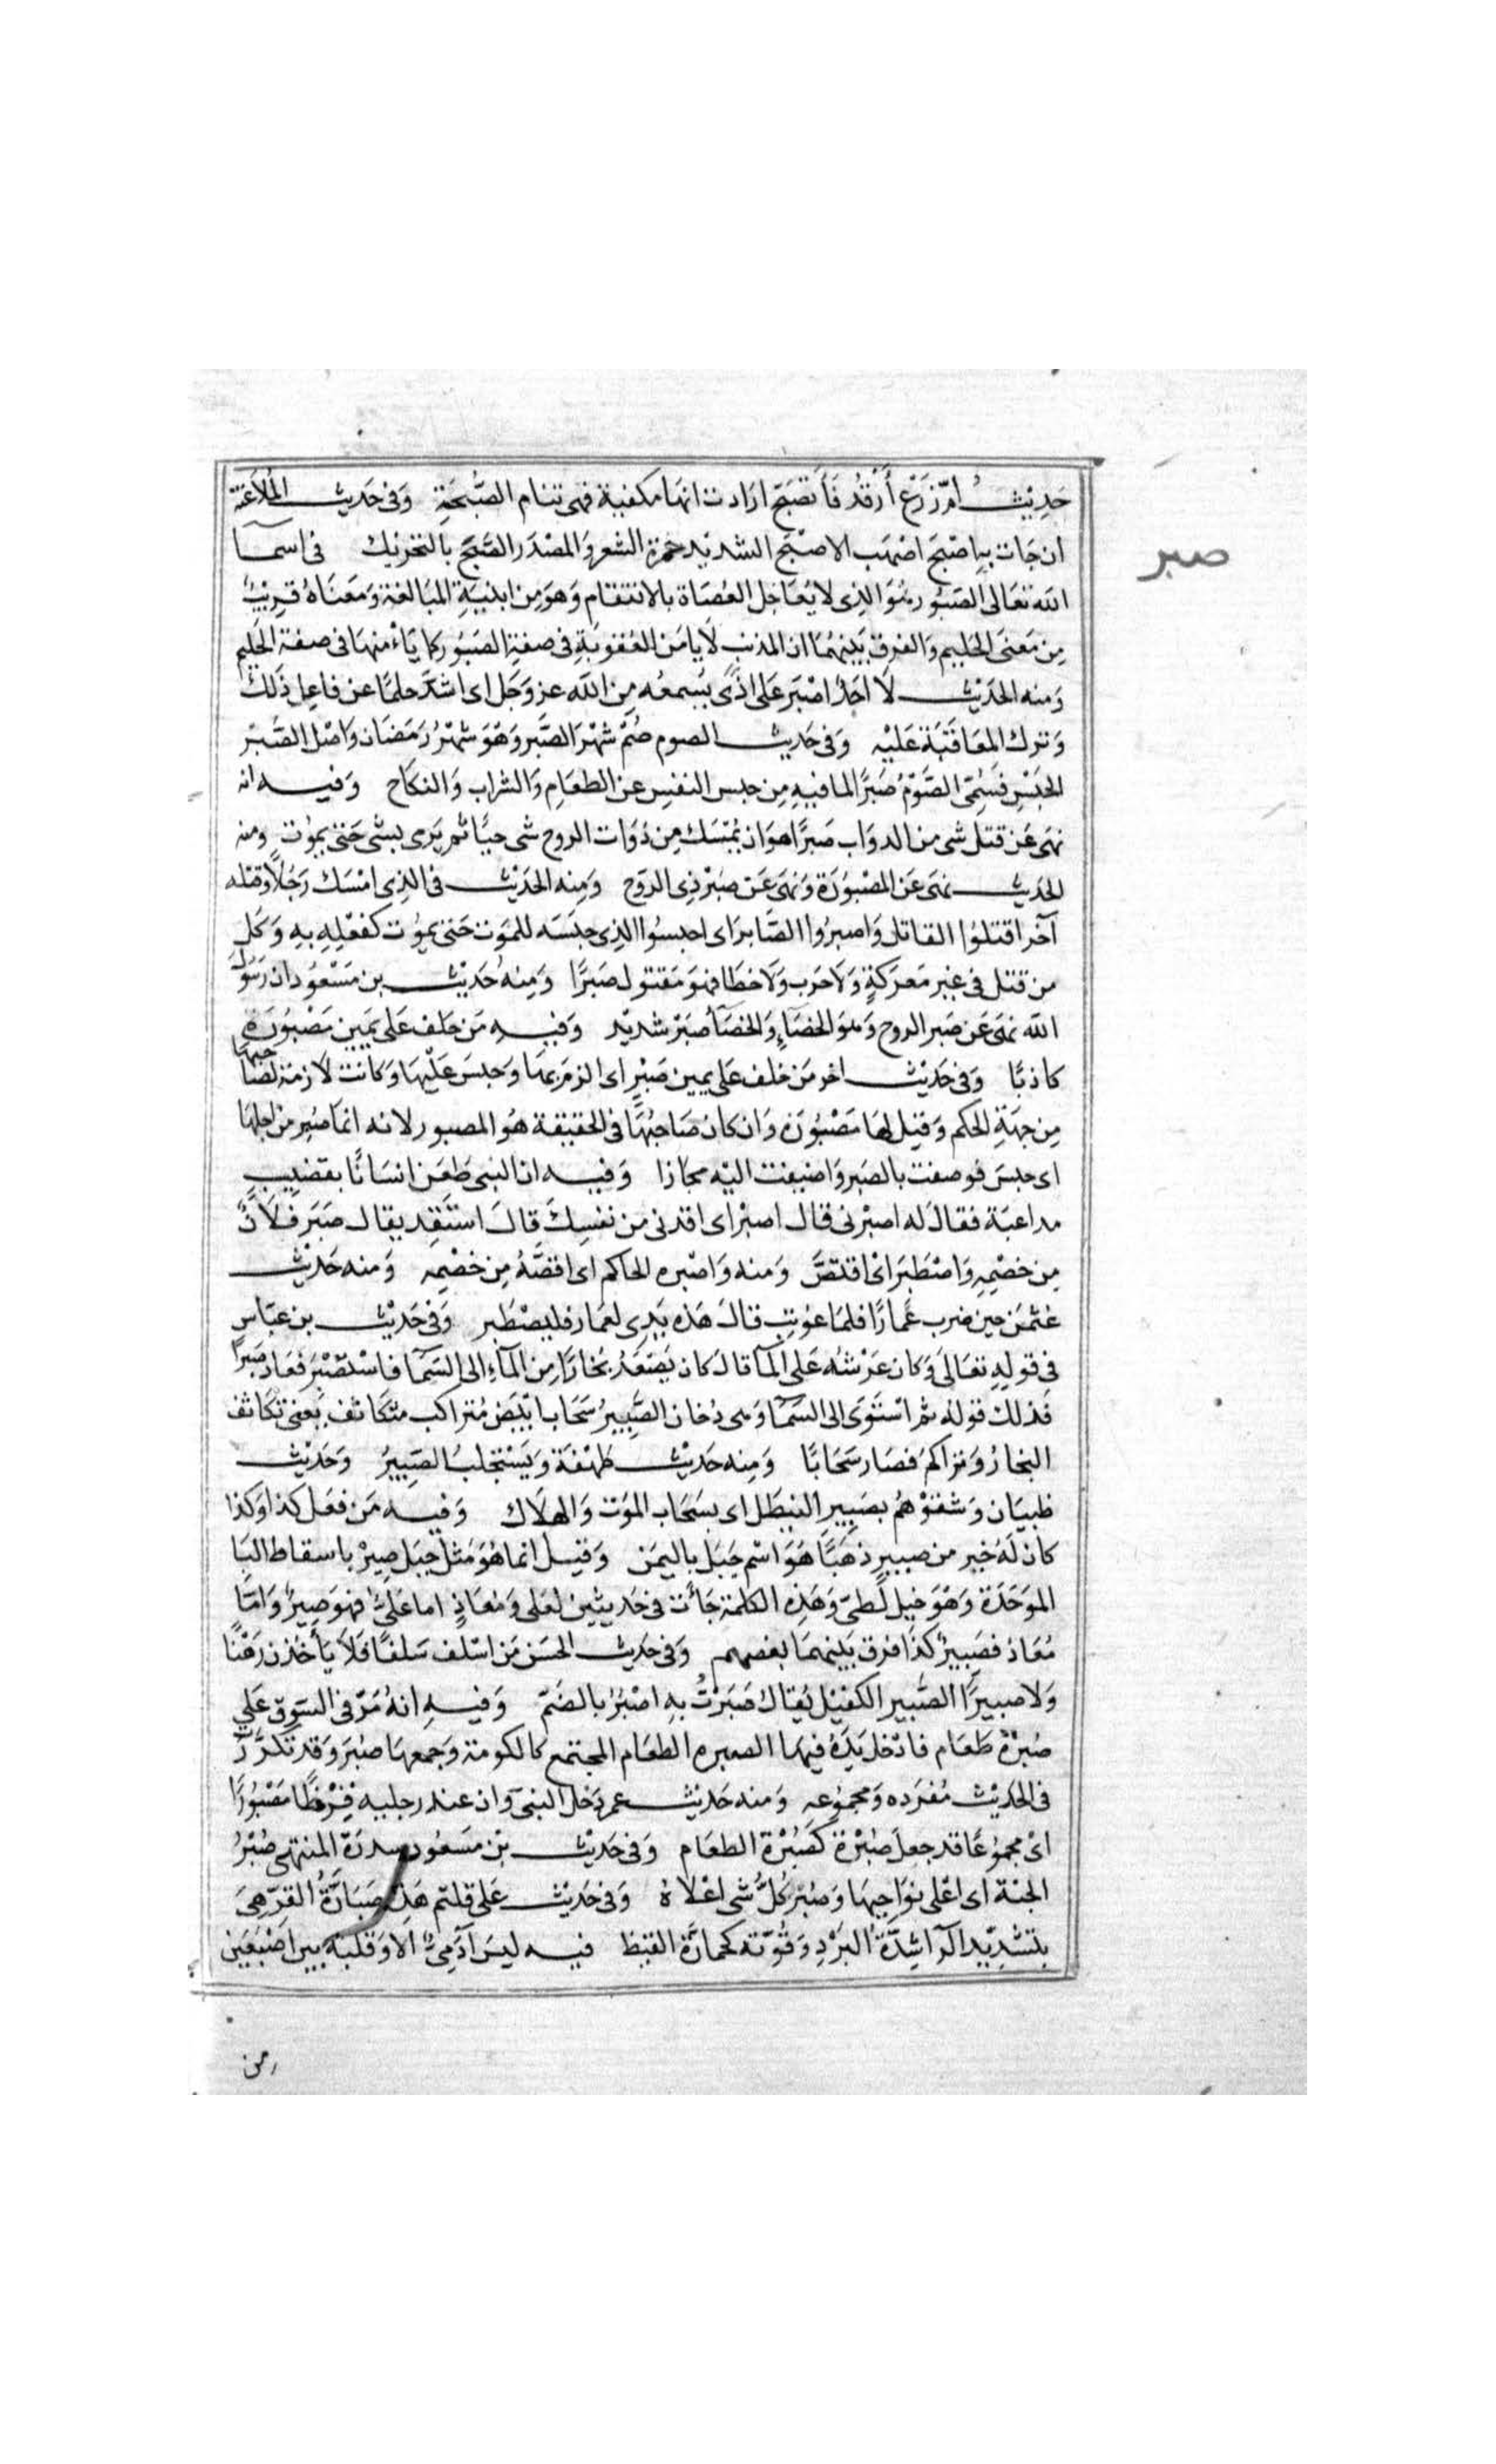 حَدِيْث اُمّ زَرْع أَرْقُدُ فَأَتصَبّح ارَادت انهَا مكفية فهى تنام الصُّبْحَةِ وَفى حَديث المُلاَعَنَة
ان جَات بهِ اصْبحَ اصْهَب الاصْبَح الشديْد حمرة الشعر وَالمصْدَر الصَّبَح بالتحْريْك فى اسمآ
صبر
الله تعَالى الصّبُور هُوَ الذِى لا يُعَاجل العُصَاة بالانتقام وَهوَ مِن ابنيَةِ المبَالغة وَمَعنَاهُ قرِيْبٌ
مِن مَعنَى الحَليم وَالفرق بَيْنهُمَا ان المذنب لَا يامَن العُقوبَةِ فى صفةِ الصَبُور كما يَاْمنهَا فى صفة الحَلِيم
وَمنه الحَديْث لَا احَدٌ اصْبَر عَلى اذًى يُسمعُه مِن الله عز وَجَل اى اشدّ حلمًا عن فاعِل ذَلكَ
وَترك المعَاقَبَة عَلَيْه وَفى حَديث الصوم صُمْ شهْرَ الصَّبر وَهْوَ شهْرُ رَمَضَان وَاصْل الصَّبْر
الحَبْسِ فَسُمّىَ الصَّوْمُ صَبرًا لما فيهِ مِن حبس النفسِ عن الطعَامِ وَالشراب وَالنكَاح وَفيه انه
نهَى عَن قتل شى من الدوَاب صَبرًا هوَ ان يُمْسَك مِن ذوَات الروح شى حيًّا ثمر يَرى بشى حَتى يموُت ومنه
الحَديث نهَى عَن المصْبُوْرَة وَنهى عَن صبْر ذِى الروّح وَمِنه الحَديْث فى الذِى امْسَك رَجُلاً وَقتله
آخَر اقتلوُا القاتل وَاصبرُوا الصَّابر اى احبسوُا الذِى حبَسَه للموَت حَتى يموُت كفعْلِهِ بهِ وَكلّ
من قتل فى غير مَعرَكةٍ وَلَا حَرب وَلَا خطَا فهوَ مَقتول صَبرًا وَمِنهُ حَديْث بن مَسْعُود ان رَسُولَ
الله نهَى عَن صَبر الروح وَهوَ الخصَآءِ وَالخصَآُ صَبرْ شديْد وَفيهِ مَن حَلف عَلى يَمِينِ مَصْبُورَةٍ
كاذبًا وَفى حَديْث اخر مَن حَلف عَلى يمين صَبْرٍ اى الزمَ بهَا وَحبسَ عَلَيْهَا وَكانت لازمة لصَاحبهَا
مِن جهَةِ الحكم وَقيْل لهَا مَصْبُورَة وَان كان صَاحبُهَا فى الحقيقة هُو المصبور لانه انما صُبِر من اجلهَا
اى حبسَ فوصفت بالصبر وَاضيفت اليْه مجازا وَفيه ان النبى طَعَن انسَانًا بقضيبٍ
مداعبَة فقالَ له اصبْرنى قال اصبْر اى اقدنى من نفسِكَ قالَ استَقِد يقال صَبَر فلَانٌ
مِن خصْمِهِ وَاصْطَبَر اىْ اقتصَّ وَمنه وَاصْبره الحاكم اى اقصَّهُ مِن خصْمِه وَمنه حَديْث
عثمَن حين ضرب عَمارًا فلما عوُتب قالَ هَذه يَدِى لعمار فليصْطَبر وَفى حَديْث بن عبَاسٍ
فى قولهِ تعَالىَ وَكان عَرْشهُ عَلى المآ قالَ كان يَصْعَدُ بُخارًا مِن المآءِ الى السّمآ فاسْتَصْبَر فعَاد صَبِيرًا
فَذلك قولهُ ثم اسْتَوَى الى السّمآ وَهى دُخان الصَّبِيرُ سَحَاب ابْيَض مُتراكب متكَاثف يَعنى تكاثف
البخارُ وَتراكمَ فصَار سَحَابًا وَمِنه حَديْث طَهْفَة وَيَسْتحلبُ الصَبِيرُ وَحَديْث
ظبيَان وَسقوْهُم بصَبِيرِ النيطَل اى بسَحَاب الموَت وَالهلَاك وَفيه مَن فعَل كذا وَكذا
كان لَهُ خير من صبيرٍ ذهَبًا هُوَ اسْم جَبَل باليمَن وَقيل انما هُوَ مَثل جَبَل صِيرْ باسقاط البَا
الموَحَدَة وَهْوَ جَبل لطىّ وَهَذِهِ الكلمة جَأَت فى حَديثين لعَلى وَمُعَاذٍ اما عَلىٌّ فهوَ صِيرٌ وَامَّا
مُعَاذ فصَبِيرٌ كذَا فرق بَيْنهمَا بعضهم وَفى حَديث الحسَن مَن اسْلف سَلفًا فَلَا يَأخذن رَهْنًا
وَلا صبيرًا الصَّبِير الكفيْل يُقال صَبَرْتُ بهِ اصْبُرُ بالضَمّ وَفيهِ انهُ مَرّ فى السّوق عَلى
صُبْرَة طَعَام فادْخل يَدَهُ فيهَا الصبره الطعَام المجتمع كالكومَة وَجَمعهَا صُبَر وَقد تكرّرَت
فى الحَديْث مُفرَده وَمجموُعه وَمنه حَديْث عمر دَخل النبىّ وان عند رجليه قَرَظًا مَصْبُورًا
اىْ مجموُعًا قد جعلَ صُبْرَة كَصُبْرَة الطعَام وَفى حَديْث بْن مَسعُود سدرَة المنتهى صُبْرُ
الجنة اى اعْلى نوَاحيهَا وَصُبْرُ كُلِّ شى اعْلاهُ وَفى حَديْث عَلى قلتم هَذِه صَبَارَّةُ القرّ هِىَ
بتشديْد الرآ شِدَّةُ البَرْدِ وَقُوّته كحمارَّة القيظ فيه ليسَ آدَمِىٌّ الا وَقلبه بين اصْبَعَين
من